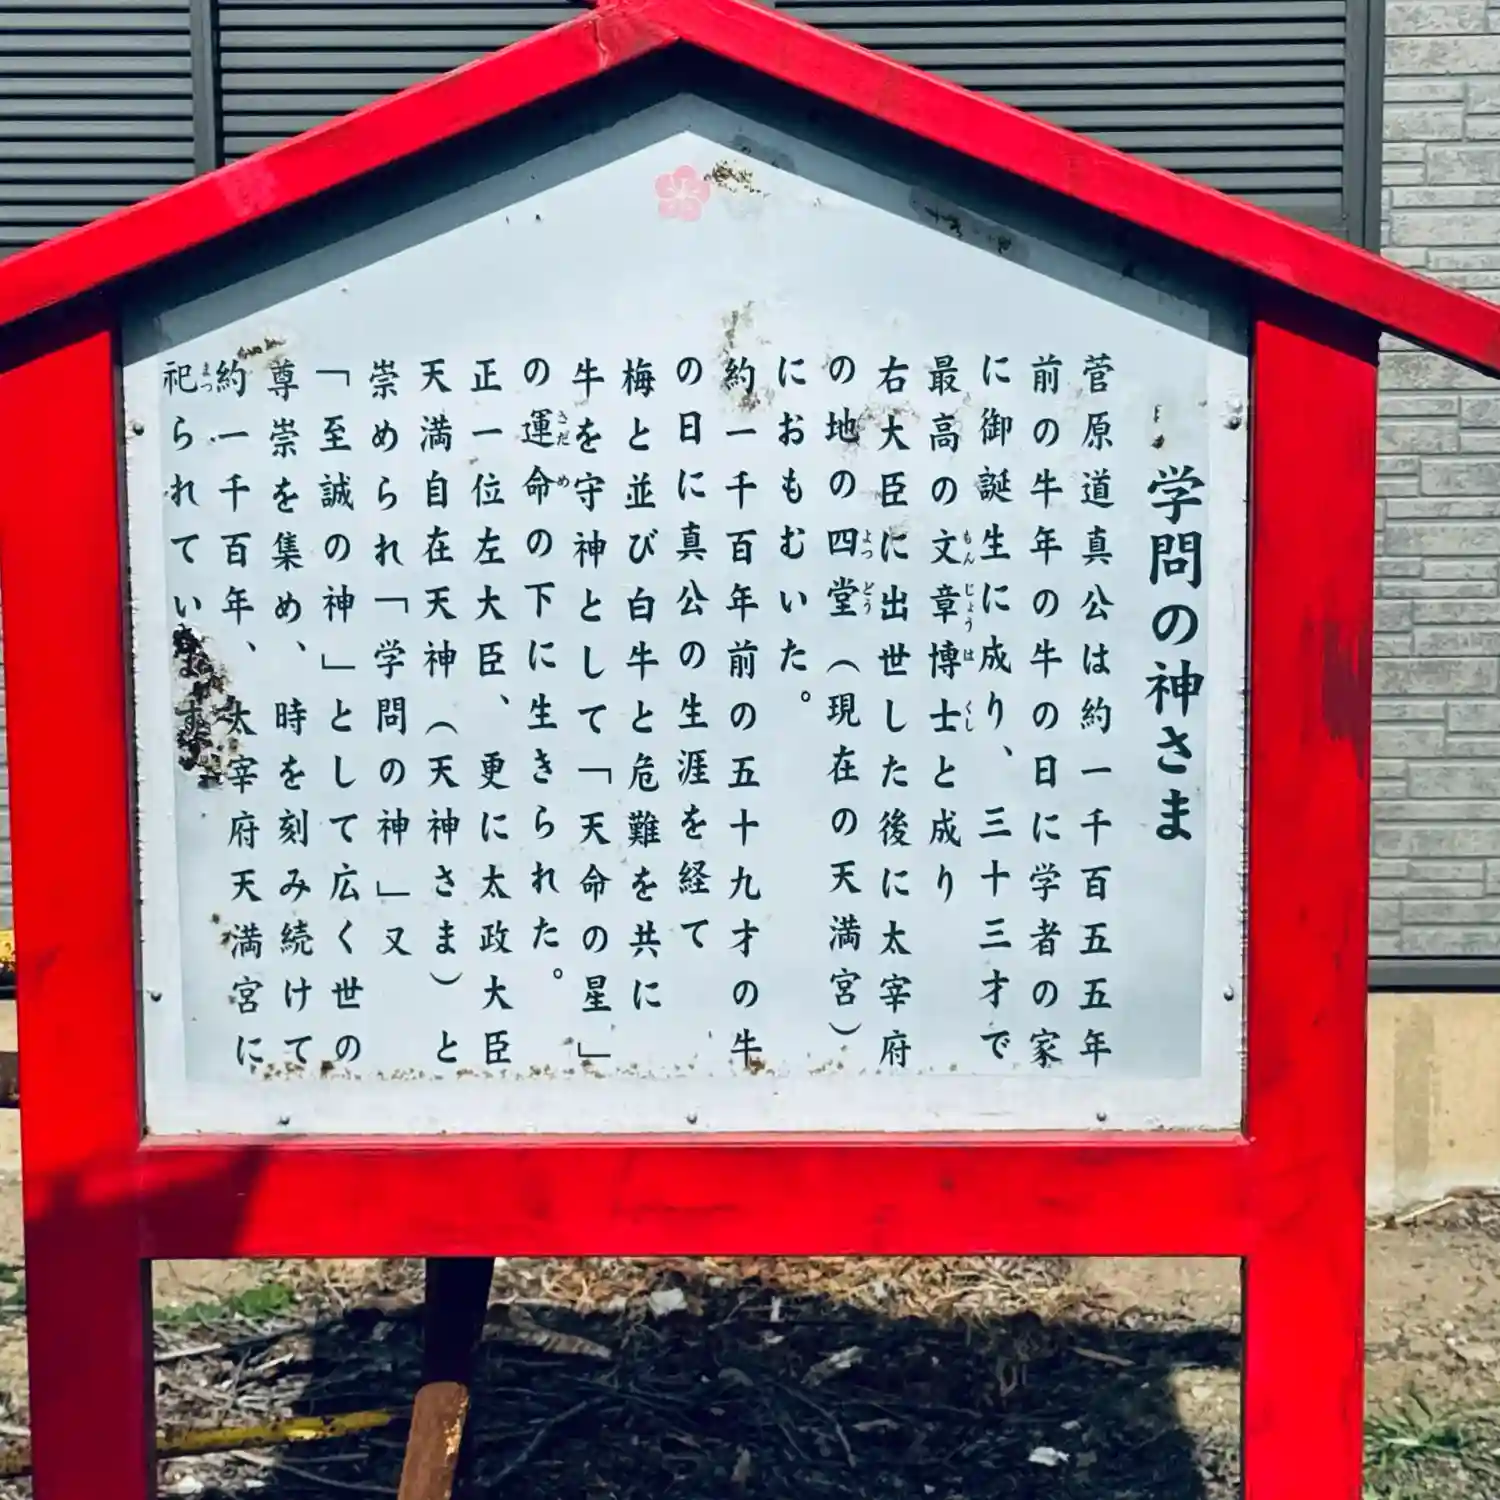 学問の神さま
菅原道真公は約一千百五五年
前の牛年の牛の日に学者の家
に御誕生に成り、三十三才で
最高の文章博士と成り
右大臣に出世した後に太宰府
の地の四堂（現在の天満宮）
におもむいた。
約一千百年前の五十九才の牛
の日に真公の生涯を経て
梅と並び白牛と危難を共に
牛を守神として「天命の星」
の運命の下に生きられた。
正一位左大臣、更に太政大臣
天満自在天神（天神さま）と
崇められ「学問の神」又
「至誠の神」として広く世の
尊崇を集め、時を刻み続けて
約一千百年、太宰府天満宮に
祀られています